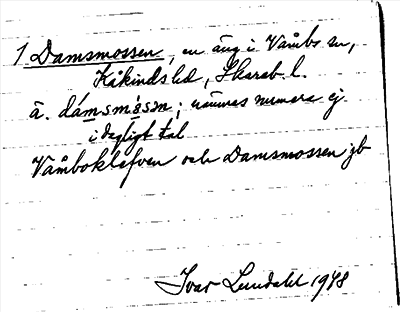 1 Damsmossen, en äng i Våmbs sn,
Kåkinds hd, Skarab. l.
ä. dámsmåsən; nämnes numera ej
i dagligt tal
Våmboklefven och Damsmossen jb
Ivar Lundahl 1948